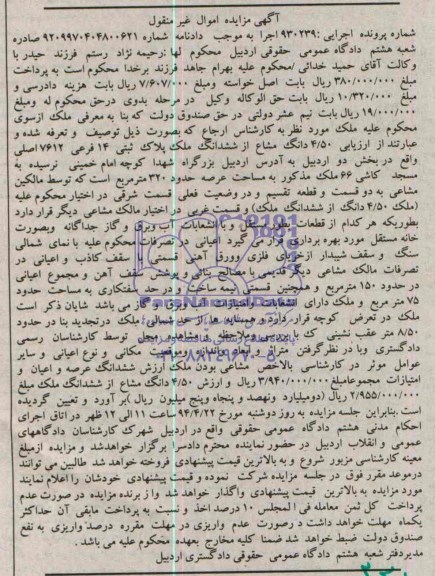 آگهی مزایده اموال غیر منقول
شماره پرونده اجرایی :۹۳۰۲۳۹ اجرا به موجب دادنامه شماره ۹۲۰۹۹۷۰۴۰۴۸۰۰۶۲۱ صادره
شعبه هشتم دادگاه عمومی حقوقی اردبیل محکوم لها :رحیمه نژاد رستم فرزند حیدر با
وکالت آقای حمید خدائی /محکوم علیه بهرام جاهد فرزند برخدا محکوم است به پرداخت
مبلغ ۳۸۰/۰۰۰/۰۰۰ ریال بابت اصل خواسته ومبلغ ۷/۶۰۷/۰۰۰ ریال بابت هزینه دادرسی و
مبلغ ۱۰/۳۲۰/۰۰۰ ریال بابت حق الوکاله وکیل در مرحله بدوی درحق محکوم له ومبلغ
۱۹/۰۰۰/۰۰۰ ریال بابت نیم عشر دولتی در حق صندوق دولت که بنا به معرفی ملک ازسوی
محکوم علیه ملک مورد نظر به کارشناس ارجاع که بصورت ذیل توصیف و تعرفه شده و
عبارتند از ارزیابی ۴/۵۰ دانگ مشاع از ششدانگ ملک پلاک ثبتی ۱۴ فرعی ۷۶۱۲ اصلی
واقع در بخش دو اردبیل به آدرس اردبیل بزرگراه شهدا کوچه امام خمینی نرسیده به
مسجد کاشی ۶۶ ملک مذکور به مساحت عرصه حدود ۳۲۰ مترمربع است که توسط مالکین
مشاعی به دو قسمت و قطعه تقسیم و در وضعیت فعلی قسمت شرقی در اختیار محکوم علیه
(ملک ۴/۵۰ دانگ از ششدانگ ملک) و قسمت غربی در اختیار مالک مشاعی دیگر قرار دارد
بطوریکه هر کدام از قطعات بطور مستقل و با انشعابات آب وبرق و گاز جداگانه وبصورت
خانه مستقل مورد بهره برداری قرار می گیرد اعیانی در تصرفات محکوم علیه با نمای شمالی
سنگ و سقف شیبدار ازخرپای فلزی وورق آهن قسمتی از سقف کاذب و اعیانی در
تصرفات مالک مشاعی دیگر قدیمی با مصالح بنائی و پوشش سقف آهن و مجموع اعیانی
در حدود ۱۵۰ مترمربع و همچنین قسمتی نیمه ساخت و در حد سفتکاری به مساحت حدود
۷۵ متر مربع و ملک دارای انشعابات وامتیازات آب وبرق و گاز می باشد شایان ذکر است
ملک در تعرض کوچه قرار دارد و همسایه ها از حد شمالی ملک درتجدید بنا در حدود
۸/۵۰ متر عقب نشینی مشاهده محل توسط کارشناس رسمی
دادگستری وبا در نظرگرفتن متراژ و ابعاد واندازه وموقعیت مکانی و نوع اعیانی و سایر
عوامل موثر در کارشناسی بالاخص مشاعی بودن ملک ارزش ششدانگ عرصه و اعیان و
امتیازات مجموعامبلغ ۳/۹۴۰/۰۰۰/۰۰۰ ریال و ارزش ۴/۵۰ دانگ مشاع از ششدانگ ملک مبلغ
۲/۹۵۵/۰۰۰/۰۰۰ ریال (دومیلیارد ونهصد و پنجاه وپنج میلیون ریال )بر آورد و تعیین گردیده
است .بنابراین جلسه مزایده به روز دوشنبه مورخ ۹۴/۴/۲۲ ساعت ۱۱ الی ۱۲ ظهر در اتاق اجرای
احکام مدنی هشتم دادگاه عمومی حقوقی واقع در اردبیل شهرک کارشناسان دادگاههای
عمومی و انقلاب اردبیل در حضور نماینده محترم دادسرا برگزار خواهدشد و مزایده ازمبلغ
معینه کارشناسی مزبور شروع و به بالاترین قیمت پیشنهادی فروخته خواهد شد طالبین می توانند
درموعد مقرر فوق در جلسه مزایده شرکت نموده و قیمت پیشنهادی خودشان را اعلام نمایند
مورد مزایده به بالاترین قیمت پیشنهادی واگذار خواهد شد واز برنده مزایده در صورت عدم
پرداخت کل ثمن معامله فی المجلس ۱۰ درصد اخذ و نسبت به پرداخت مابقی آن حداکثر
یکماه مهلت خواهد داشت د رصورت عدم واریزی در مهلت مقرره درصد واریزی به نفع
صندوق دولت ضبط خواهد شد ضمنا کلیه مخارج بعهده محکوم علیه می باشد .
مدیردفتر شعبه هشتم دادگاه عمومی حقوقی دادگستری اردبیل